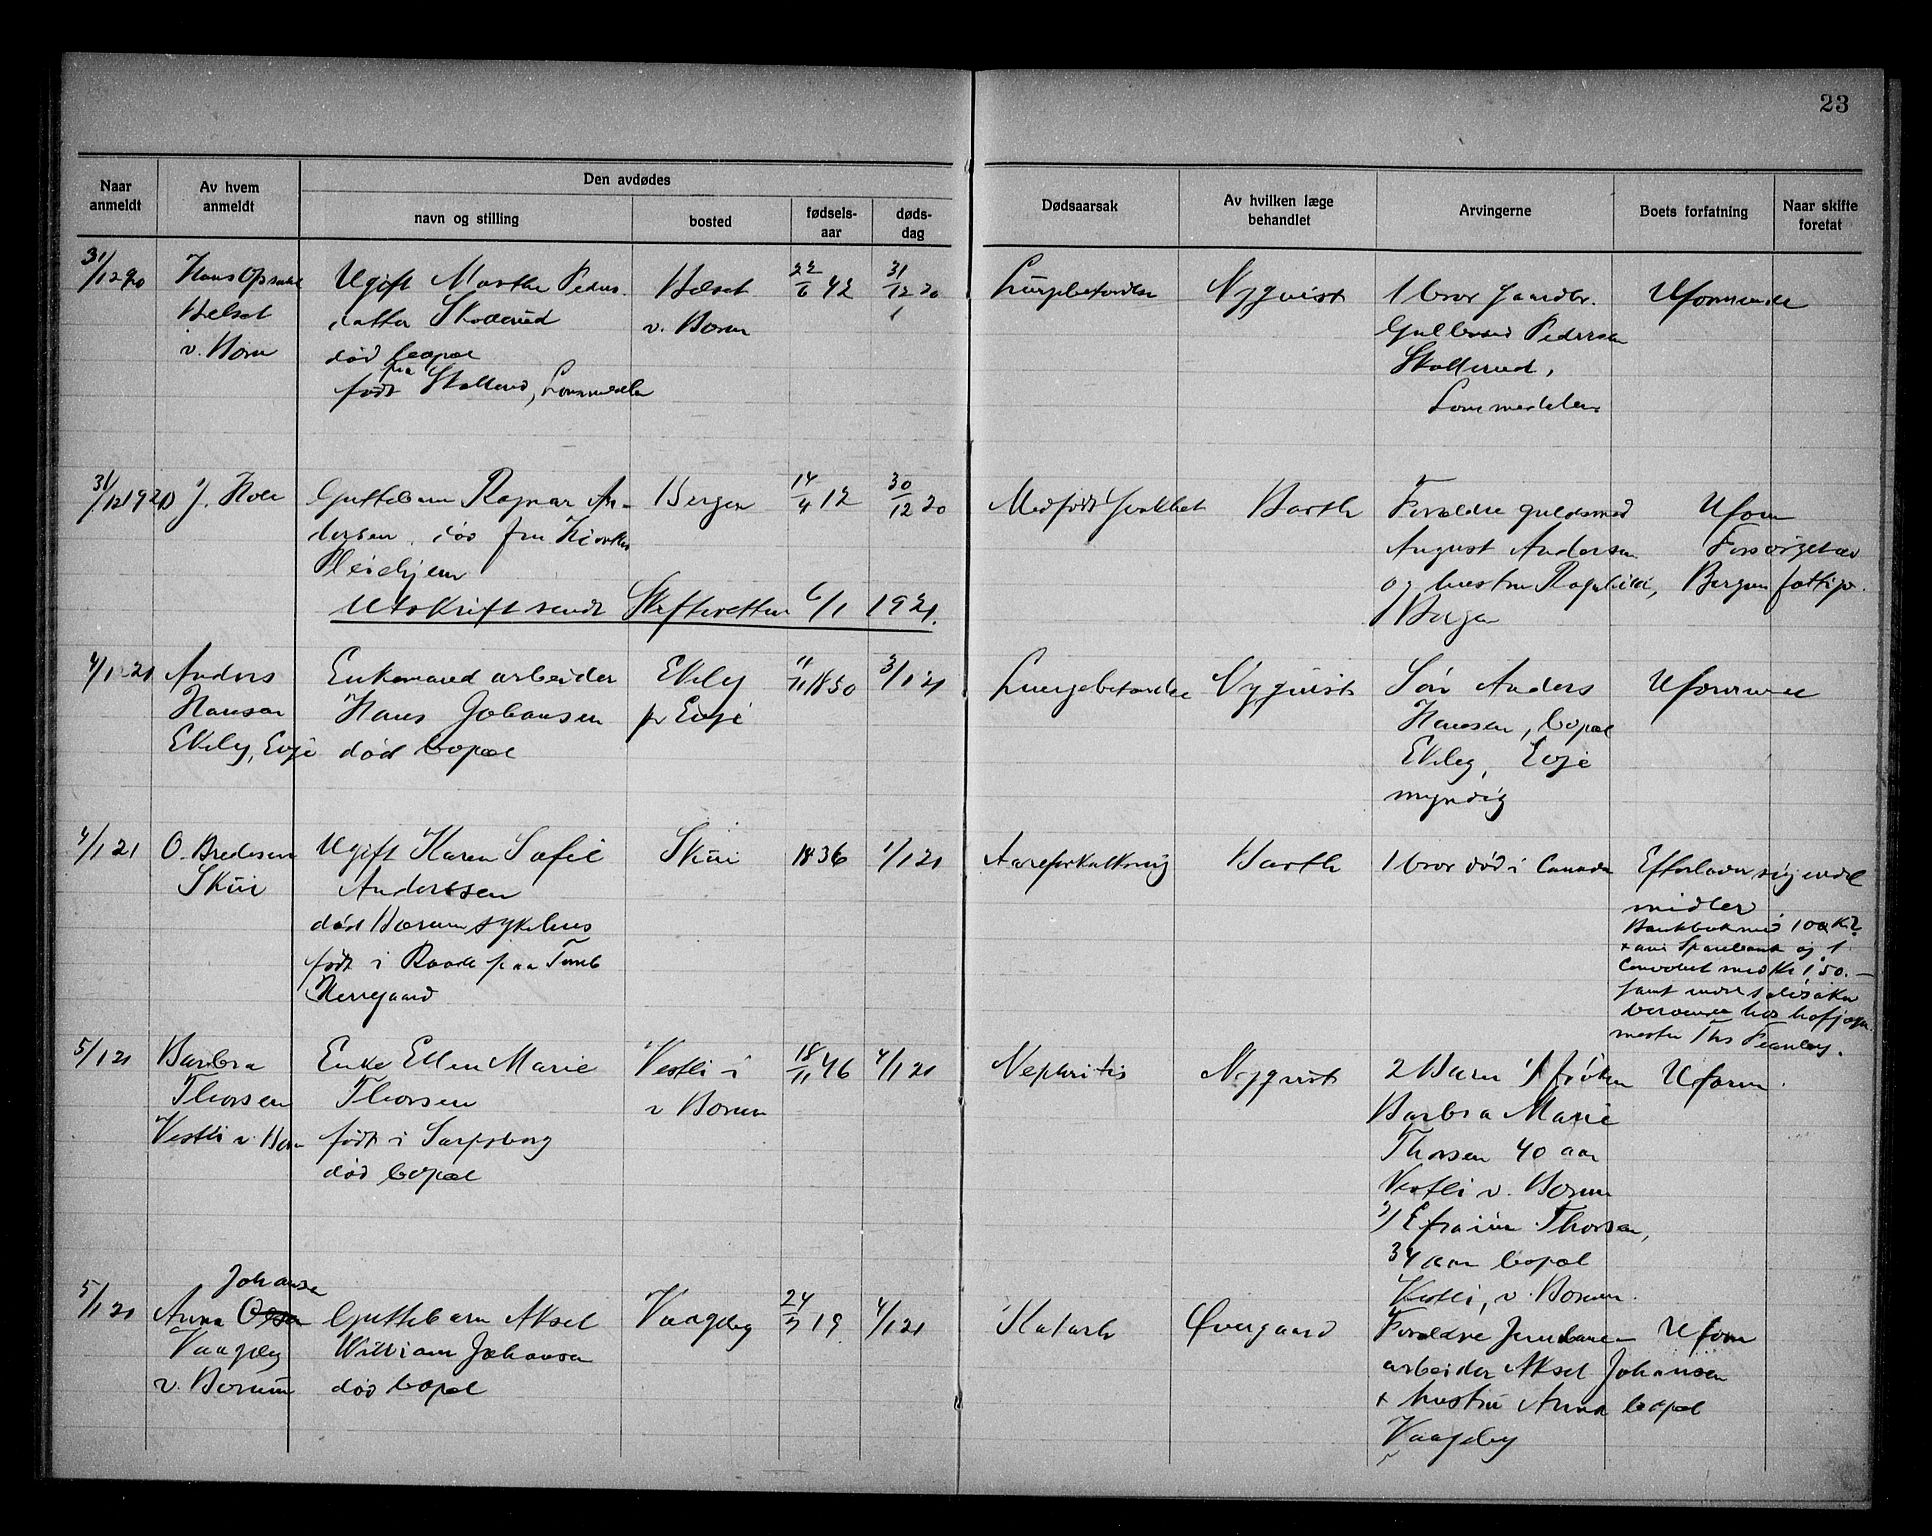 23
Naar anmeldt
Av hvem anmeldt
Den avdødes
navn og stilling
bosted
fødsels-aar
døds-dag
Dødsaarsak
Av hvilken læge behandlet
Arvingerne
Boets forfatning
Naar skifte foretat
31/12 20
Hans Opsahl
Belset
v. Bærum
Ugift Marthe Peders
datter Skollerud
død bopæl
født paa Skollerud, Lommedalen
Belset
v. Bærum
22/6 42
31/12 20
Lungebetændelse
Nyquist
1 bror gaardbr.
Gulbrand Pedersen
Skollerud,
Lommedalen
Uformuende
31/12 1920
J. Hole
Guttebarn Ragnar An-
dersen, død fru
Pleiehjem
Bergen
14/4 12
30/12 20
Medfødt svakhet
Barth
Forældre guldsmed
August Andersen
og hustru Ragnhild,
Bergen
Uform
Forsørget av
Bergens fattigv.
Utskrift sendt Skifteretten 6/1 1921.
4/1 21
Anders
Hansen
Ekely, Evje
Enkemand arbeider
Hans Johansen
død bopæl
Ekely
pr Evje
11/11 1850
3/1 21
Lungebetændelse
Nyquist
Søn Anders
Hansen, bopæl
Ekely, Evje
myndig
Uformuende
4/1 21
O. Bredesen
Skui
Ugift Karen Sofie
Anderssen
død Bærum sykehus
født i Raade paa Tomb
Herregaard
Skui
1836
1/1 21
Aareforkalkning
Barth
1 bror død i Canada
Efterlader sig endel
midler
Bankbok med 100 Kr
Sparebank og 1
Convolut med Kr 150.-
samt endel sølvsaker
beroende hos hofjæger
mester Ths Fearnley.
5/1 21
Barbra
Thorsen
Vestli v. Bærum
Enke Ellen Marie
Thorsen
født i Sarpsborg
død bopæl
Vestli i
v Bærum
18/11 46
4/1 21
Nephritis
Nyquist
2 Barn 1/ frøken
Barbra Marie
Thorsen 40 aar
Vestli v. Bærum
2/ Efraim Thorsen,
34 aar bopæl
Vestli, v. Bærum.
Uform.
5/1 21
Johansen
Anna Olsen
Vaagely
v. Bærum
Guttebarn Aksel
William Johansen
død bopæl
Vaagely
24/7 19
4/1 21
Katarh
Øvergaard
Forældre Jernbane-
arbeider Aksel Johansen
+ hustru Anna bopæl
Vaagely
Uform